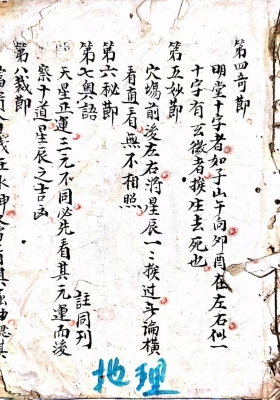 第四奇節
明堂十字者如子山午向夘酉在左右似一
十字有玄微者挨生去死也
第五妙節
穴場前後左右將星辰一二挨过毋論橫
看直看無不相照
第六秘節
第七奥語　　註同刋
天星正運三元不同必先看其元運而後
察十道星辰之吉凶
第八裁節
地理